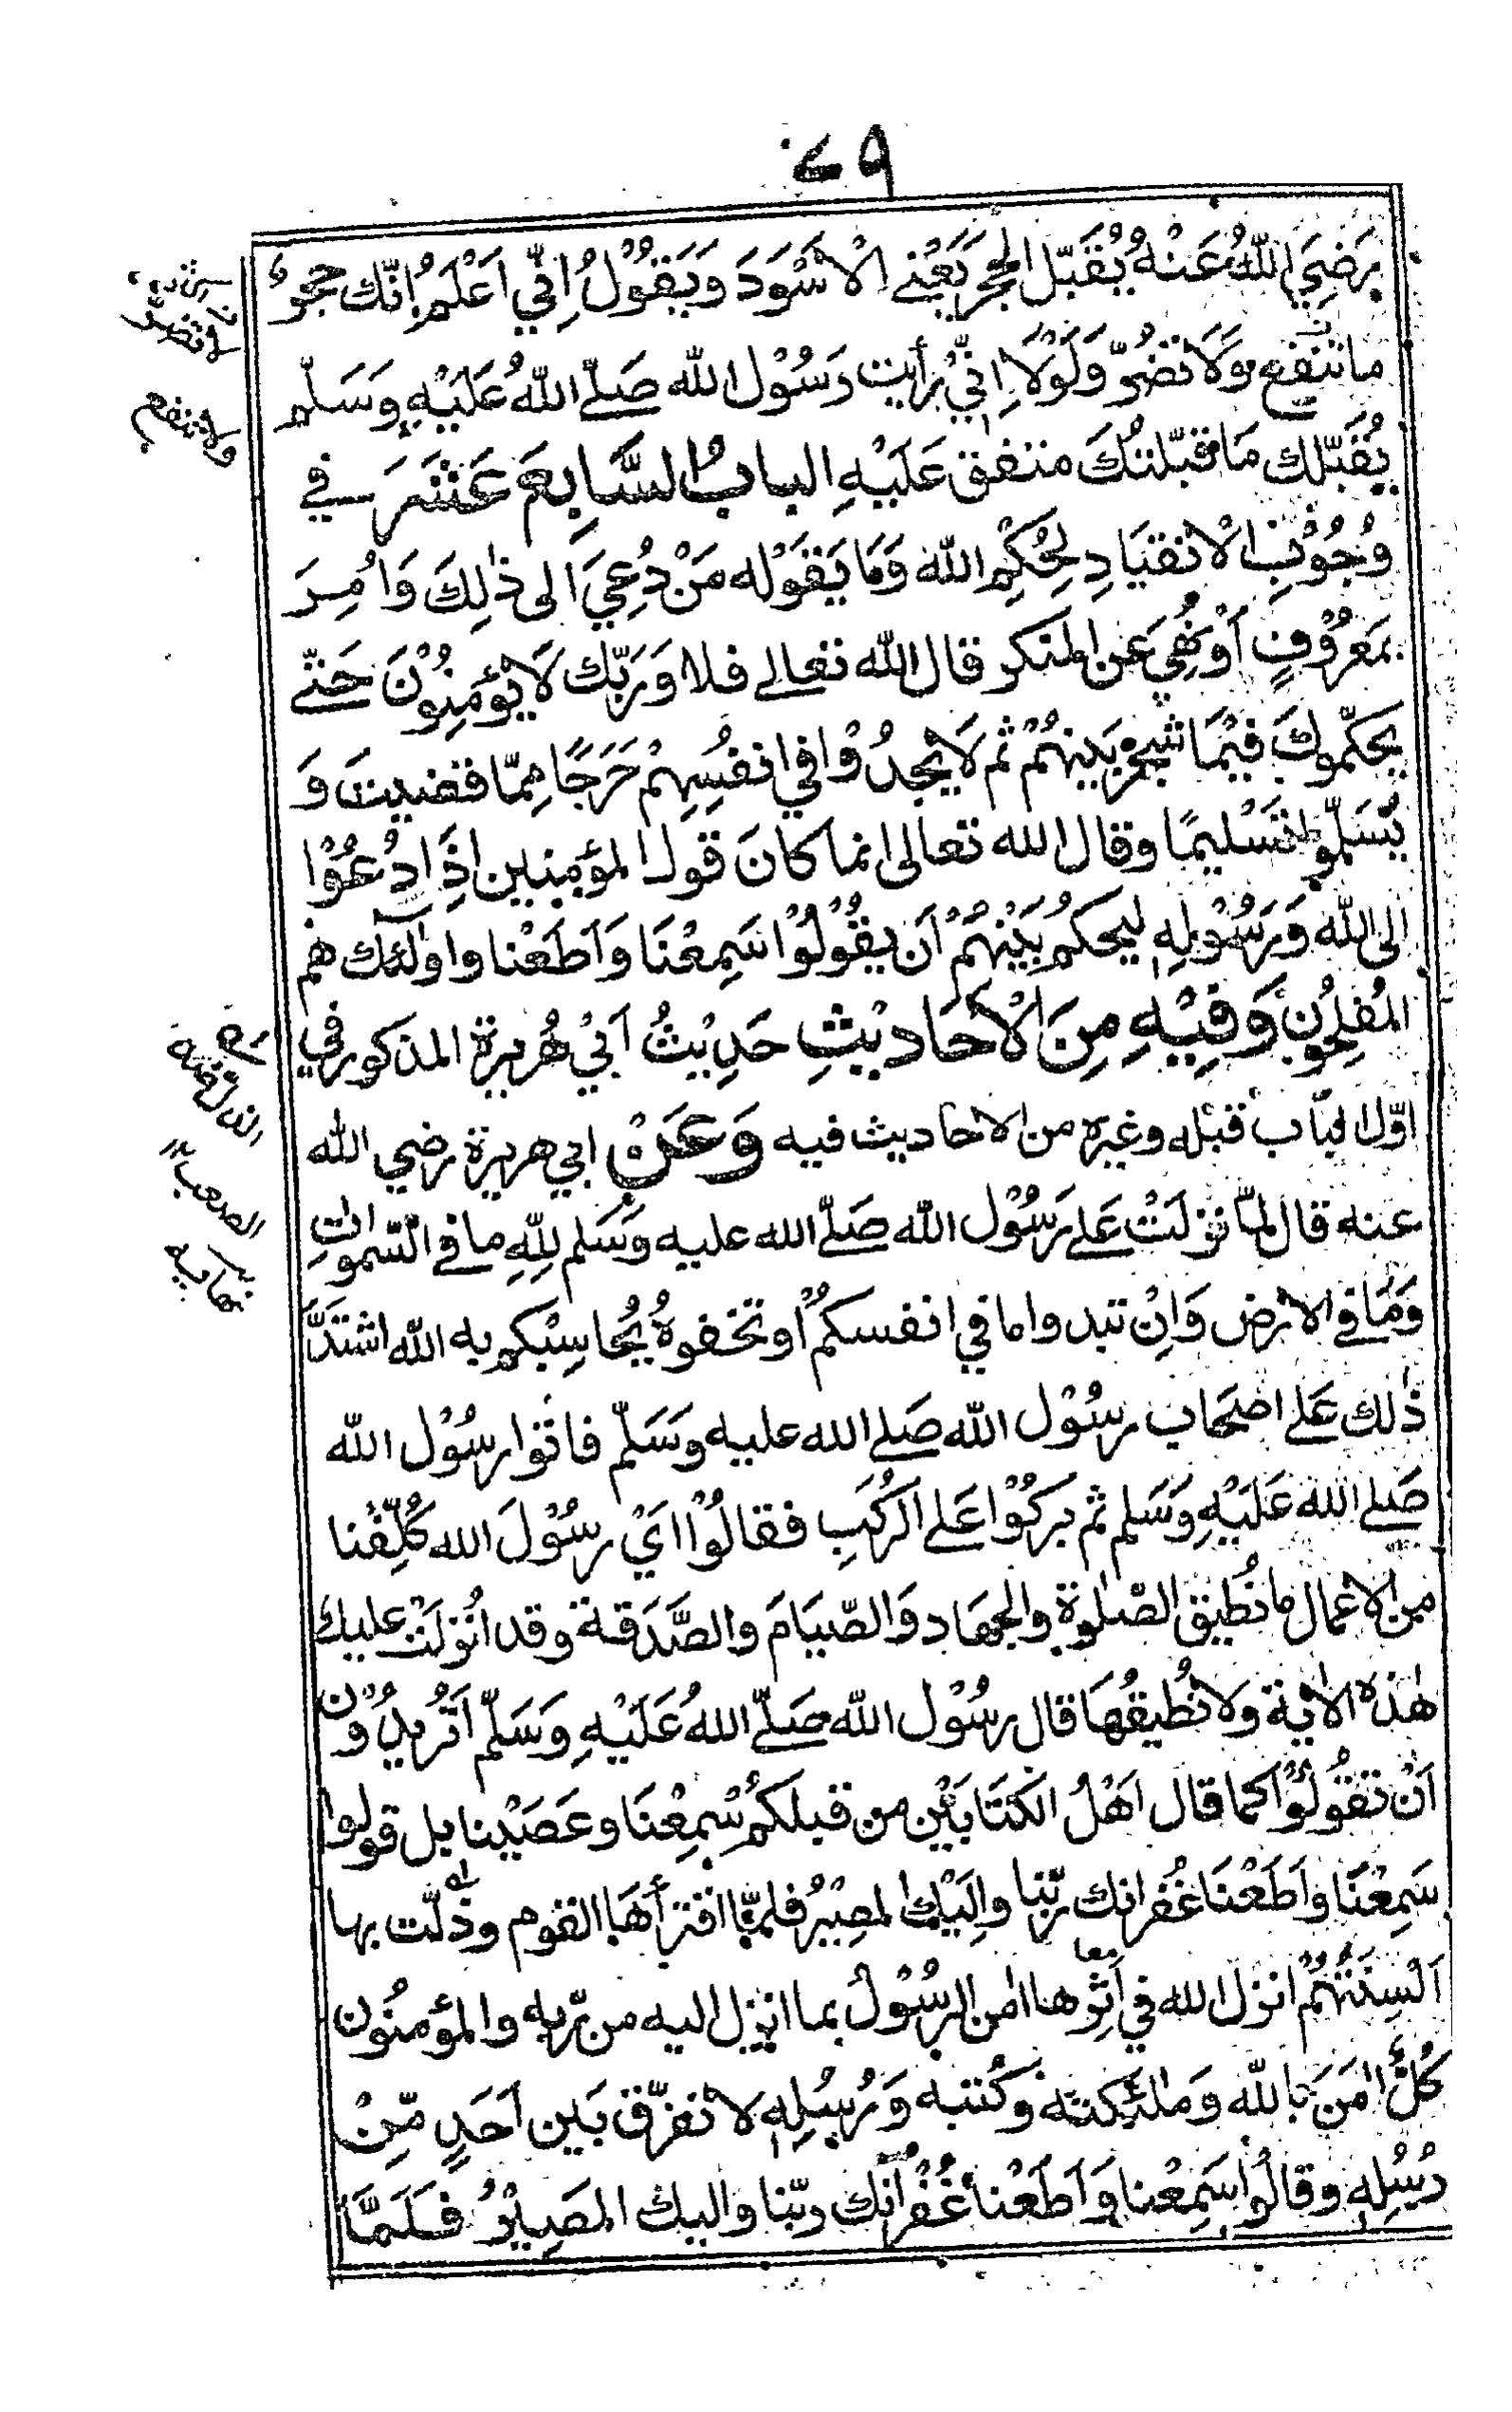 ٧٩
رَضِيَ اللهُ عَنْهُ يُقَبّل الحَجَرَ يَعْنِے الْاَسْوَدَ وَيَقُوْلُ اِنِّي اَعْلَمُ اِنَّك حجرٌ
ما تنفع وَلَا تضُرّ وَلَوْلَا اِنِّي رأيت رَسُوْل الله صَلّے اللهُ عَلَيْهِ وَسَلّم
يُقَبّلك مَا قبّلتُكَ متفق عَلَيْهِ الباب السَّابِعَ عَشَرَ في
وُجُوْبِ الْانقيَادِ لِحُكْمِ الله وَمَا يَقوْله مَنْ دُعِيَ الى ذٰلِكَ وَاُمِرَ
بمَعْرُوْفٍ اَوْ نُهِيَ عَن المنكر قال الله تعالے فلا وَرَبّك لَا يُؤمِنُوْنَ حَتّے
يحكّموكَ فيْمَا شجرَ بَينهُمْ ثم لَا يَجدُوْا في انفُسِهِمْ حَرَجًا مِمّا قضيتَ وَ
يُسَلّموا تَسْليمًا وقال الله تعالى انما كانَ قول المؤمِنين اِذَا دُعُوْا
الى الله وَرَسُوْلِهٖ ليحكمَ بَيْنَهُمْ اَن يقُوْلُوْا سَمِعْنَا وَاَطَعْنا واولٰئك هُم
المُفلِحُوْن وَفِيْهِ مِنَ الْاَحَاديْثِ حَدِيْثُ اَبيْ هُرَيرة المذكور في
اوّل الباب قبْله وغيره من الاحاديث فيه وَعَنْ ابي هريرة رضي الله
عنه قال لمّا نزلَتْ عَلے رَسُوْل الله صَلّے الله عليه وَسَلم لِلّهِ ما في السّموات
وَمَا في الارض وَاِنْ تبدوا ما في انفسكمْ اَو تخفوهُ يُحاسِبْكم به الله اشتدَّ
ذٰلك عَلے اصْحَاب رسُوْل الله صَلے الله عليه وَسَلّم فاتوا رسُوْل الله
صَلے الله عَلَيْهِ وَسَلم ثم بركُوْا عَلے الركَبِ فقالُوْا اَيْ رسُوْلَ الله كُلِّفْنا
من الاعمال ما نُطيق الصّلوٰة والجهاد وَالصّيَامَ والصَّدَقة وقد انُزلَتْ عليك
هٰذه الاٰية ولا نُطيقُهَا قال رسُوْل الله صَلّے اللهُ عَلَيْهِ وَسَلّم اَتُريدُوْن
اَنْ تقُولُوْا كما قال اَهْلُ الكتَابَيْن من قبلكمْ سَمِعْنَا وعَصَيْنا بل قولوا
سَمِعْنَا وَاَطَعْنَا غُفرانك رَبّنا واِلَيْك المصِيْرُ فلمّا اقترأهَا القوم وذلّت بها
اَلْسِنَتُهُمْ انزل الله في اَثرِها اٰمن الرسُوْلُ بما انزل اليه من رّبهٖ والمؤمنُون
كُلٌّ اٰمَنَ بالله وَملٰئِكتهٖ وَكُتبهٖ وَرُسُلِهٖ لا نفرّق بَين اَحَدٍ مّنْ
رسُلِهٖ وقالُوا سَمِعْنا وَاَطَعْنا غُفْرانك ربّنا واليك المصِيْرُ فَلَمَّا
لا تضرّ
ولا تنفع
الصعب
نهاية